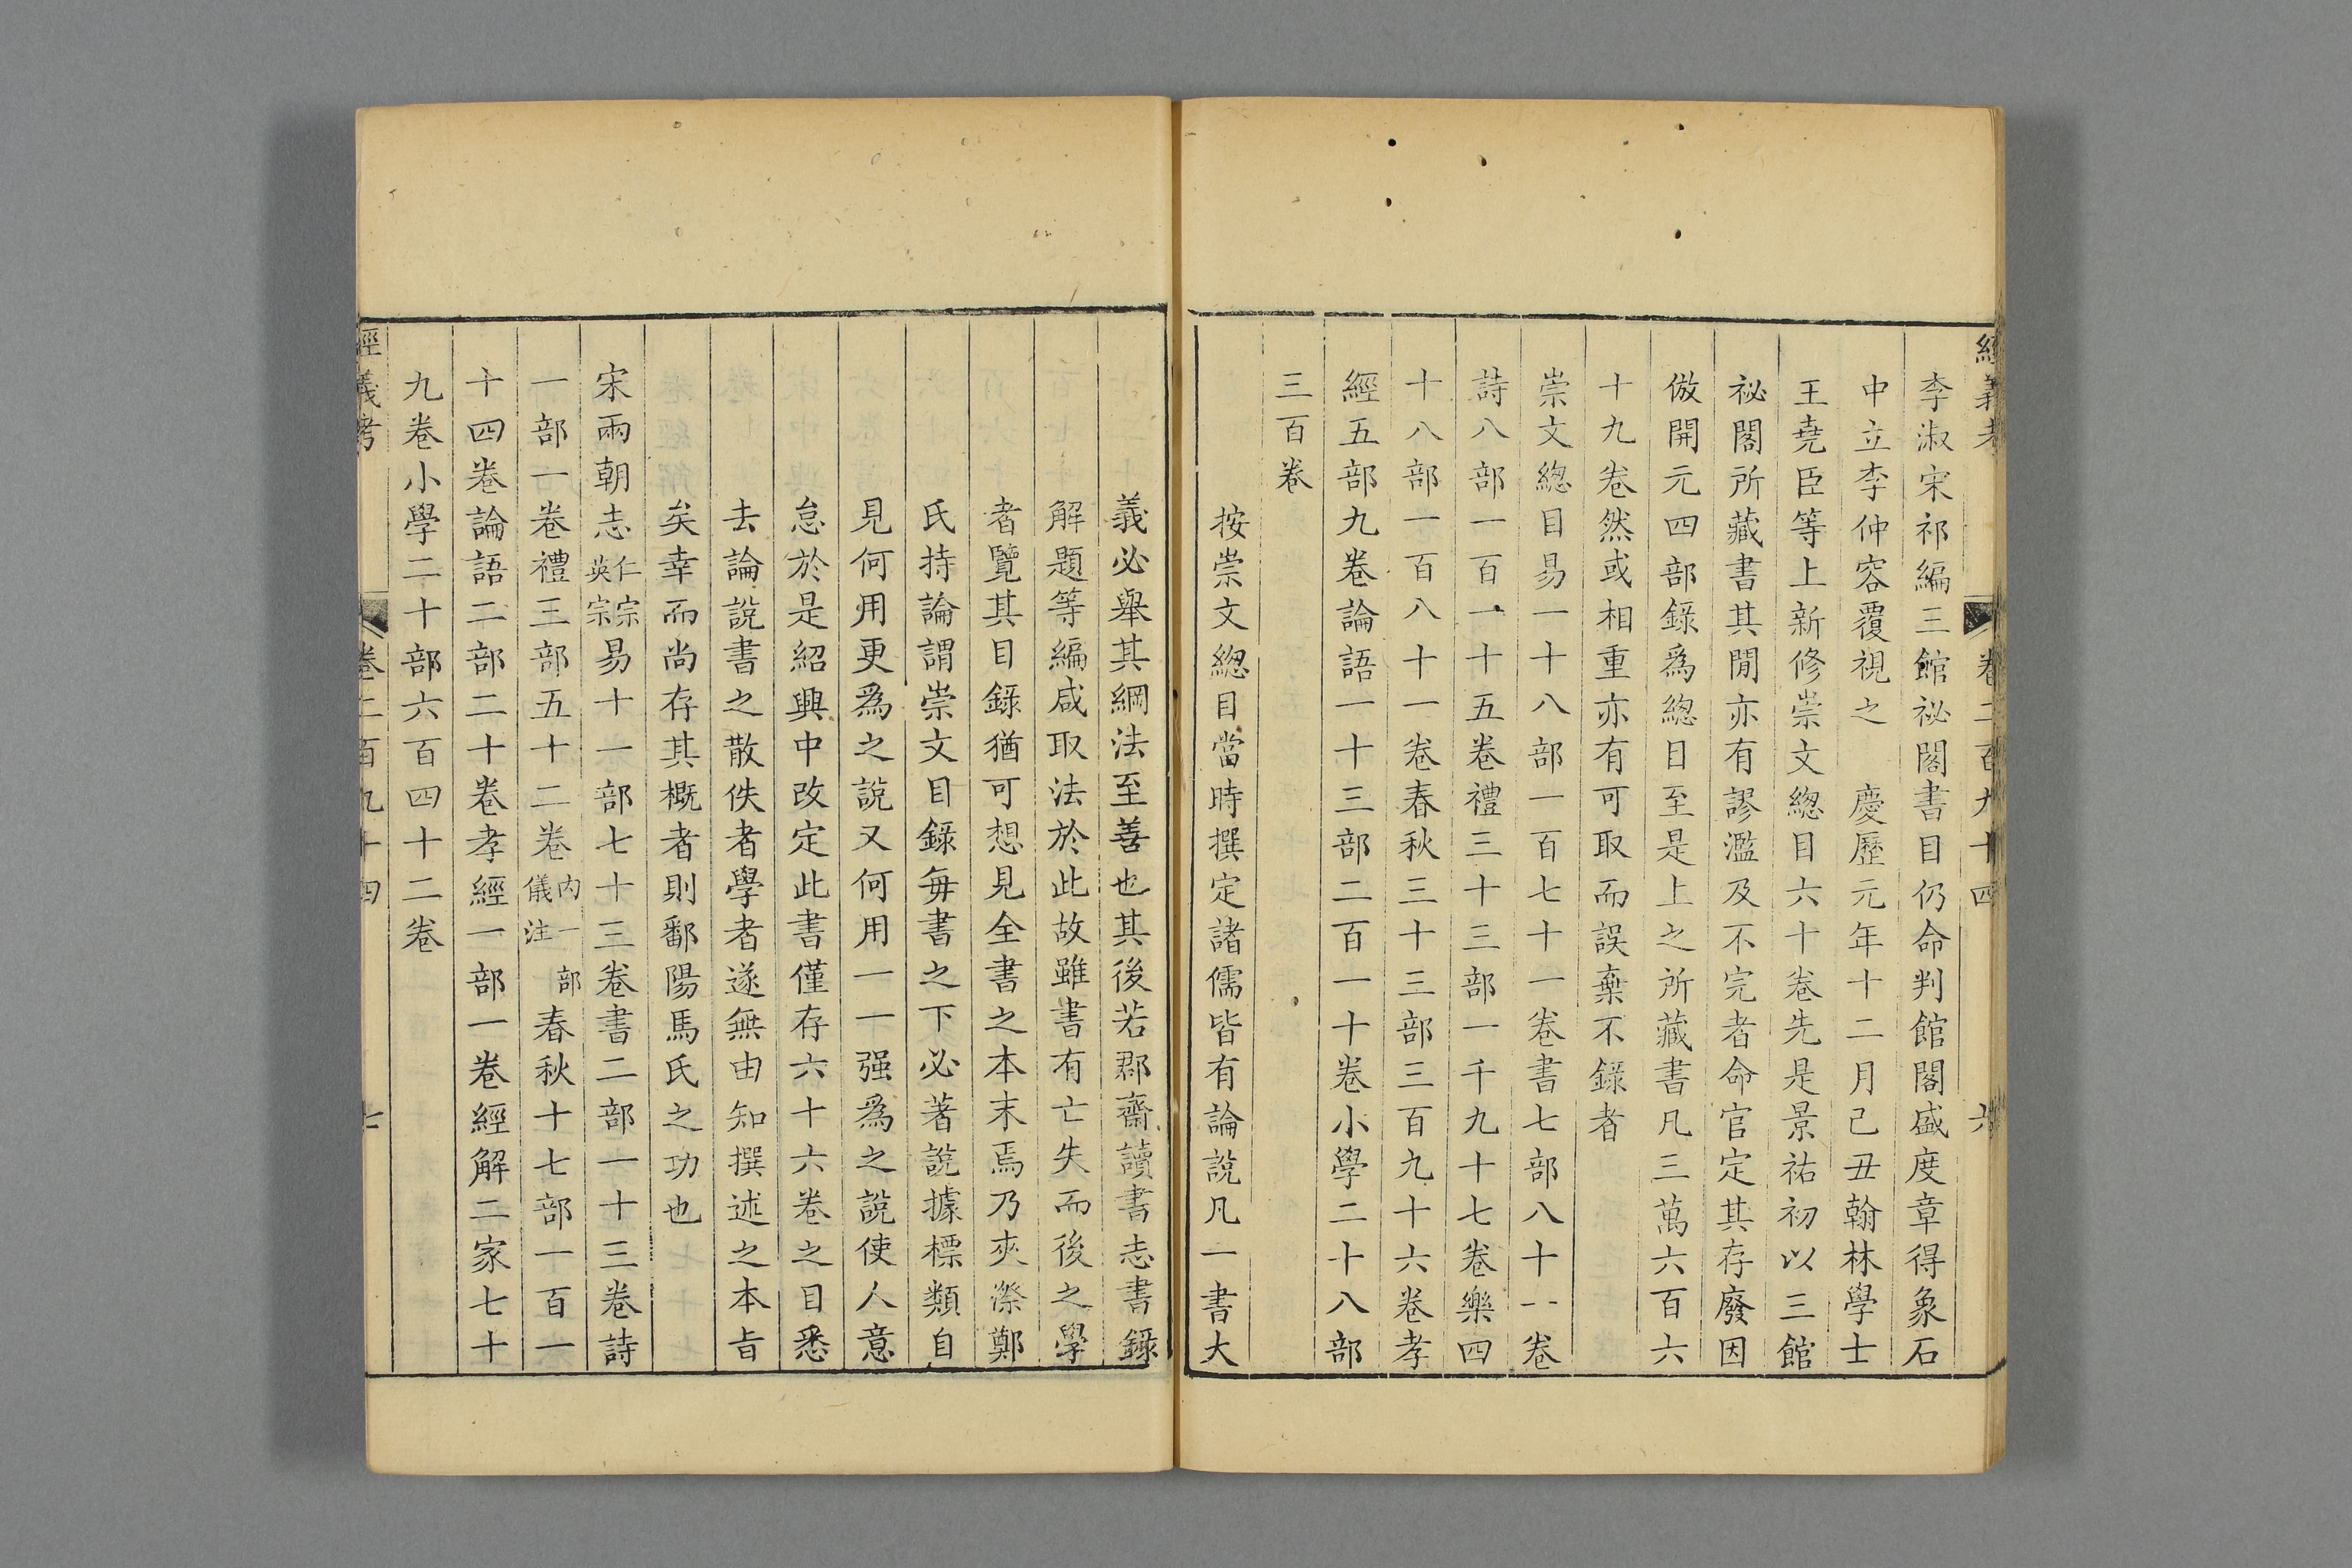 經義考 卷二百九十四 六
李淑宋祁編三館祕閣書目仍命判館閣盛度章得象石
中立李仲容覆視之 慶歷元年十二月己丑翰林學士
王堯臣等上新修崇文總目六十卷先是景祐初以三館
祕閣所藏書其閒亦有謬濫及不完者命官定其存廢因
倣開元四部錄爲總目至是上之所藏書凡三萬六百六
十九卷然或相重亦有可取而誤棄不錄者
崇文總目易一十八部一百七十一卷書七部八十一卷
詩八部一百一十五卷禮三十三部一千九十七卷樂四
十八部一百八十一卷春秋三十三部三百九十六卷孝
經五部九卷論語一十三部二百一十卷小學二十八部
三百卷
按崇文總目當時撰定諸儒皆有論說凡一書大
義必舉其綱法至善也其後若郡齋讀書志書錄
解題等編咸取法於此故雖書有亡失而後之學
者覽其目錄猶可想見全書之本末焉乃夾漈鄭
氏持論謂崇文目錄每書之下必著說據標類自
見何用更爲之說又何用一一强爲之說使人意
怠於是紹興中改定此書僅存六十六卷之目悉
去論說書之散佚者學者遂無由知撰述之本旨
矣幸而尚存其概者則鄱陽馬氏之功也
宋兩朝志仁宗英宗易十一部七十三卷書二部一十三卷詩
一部一卷禮三部五十二卷內一部儀注春秋十七部一百一
十四卷論語二部二十卷孝經一部一卷經解二家七十
九卷小學二十部六百四十二卷
經義考 卷二百九十四 七